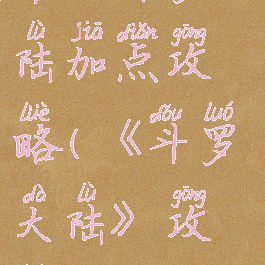 lù jiā diǎn gōng
陆加点攻
lüè dòu luó
略(《斗罗
dà lù gōng
大陆》攻